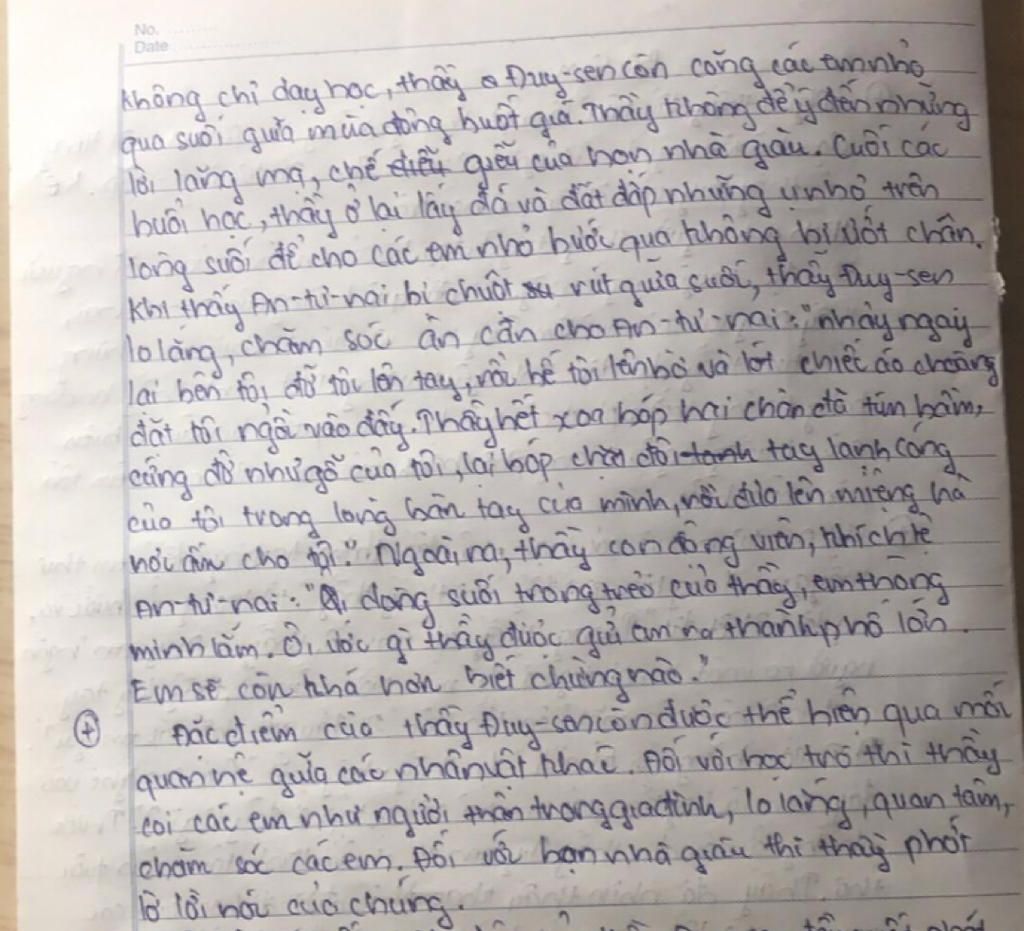 No.
Date
Không chỉ dạy học, thầy Đuy-sen còn cõng các em nhỏ
qua suối giữa mùa đông buốt giá. Thầy không để ý đến những
lời lăng mạ, chế giễu của bọn nhà giàu. Cuối các
buổi học, thầy ở lại lấy đá và đất đắp những ụ nhỏ trên
lòng suối để cho các em nhỏ bước qua không bị ướt chân.
Khi thấy An-tư-nai bị chuột rút giữa suối, thầy Đuy-sen
lo lắng, chăm sóc ân cần cho An-tư-nai: "nhảy ngay
lại bên tôi, đỡ tôi lên tay, rồi bế tôi lên bờ và lót chiếc áo choàng
đặt tôi ngồi vào đấy. Thầy hết xoa bóp hai chân đã tím bầm,
cứng đờ như gỗ của tôi, lại bóp đôi tay lạnh cóng
của tôi trong lòng bàn tay của mình, rồi đưa lên miệng hà
hơi ấm cho tôi." Ngoài ra, thầy còn động viên, khích lệ
An-tư-nai: "Ôi dòng suối trong trẻo của thầy, em thông
minh lắm. Ôi, ước gì thầy được gửi em ra thành phố lớn.
Em sẽ còn khá hơn biết chừng nào."
+ Đặc điểm của thầy Đuy-sen còn được thể hiện qua mối
quan hệ giữa các nhân vật khác. Đối với học trò thì thầy
coi các em như người thân trong gia đình, lo lắng, quan tâm,
chăm sóc các em. Đối với bọn nhà giàu thì thầy phớt
lờ lời nói của chúng.